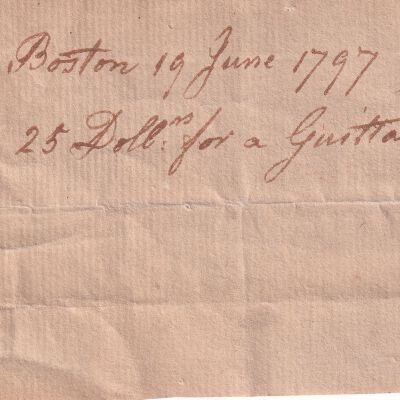 Boston 19 June 1797
25 Doll.rs for a Guitta